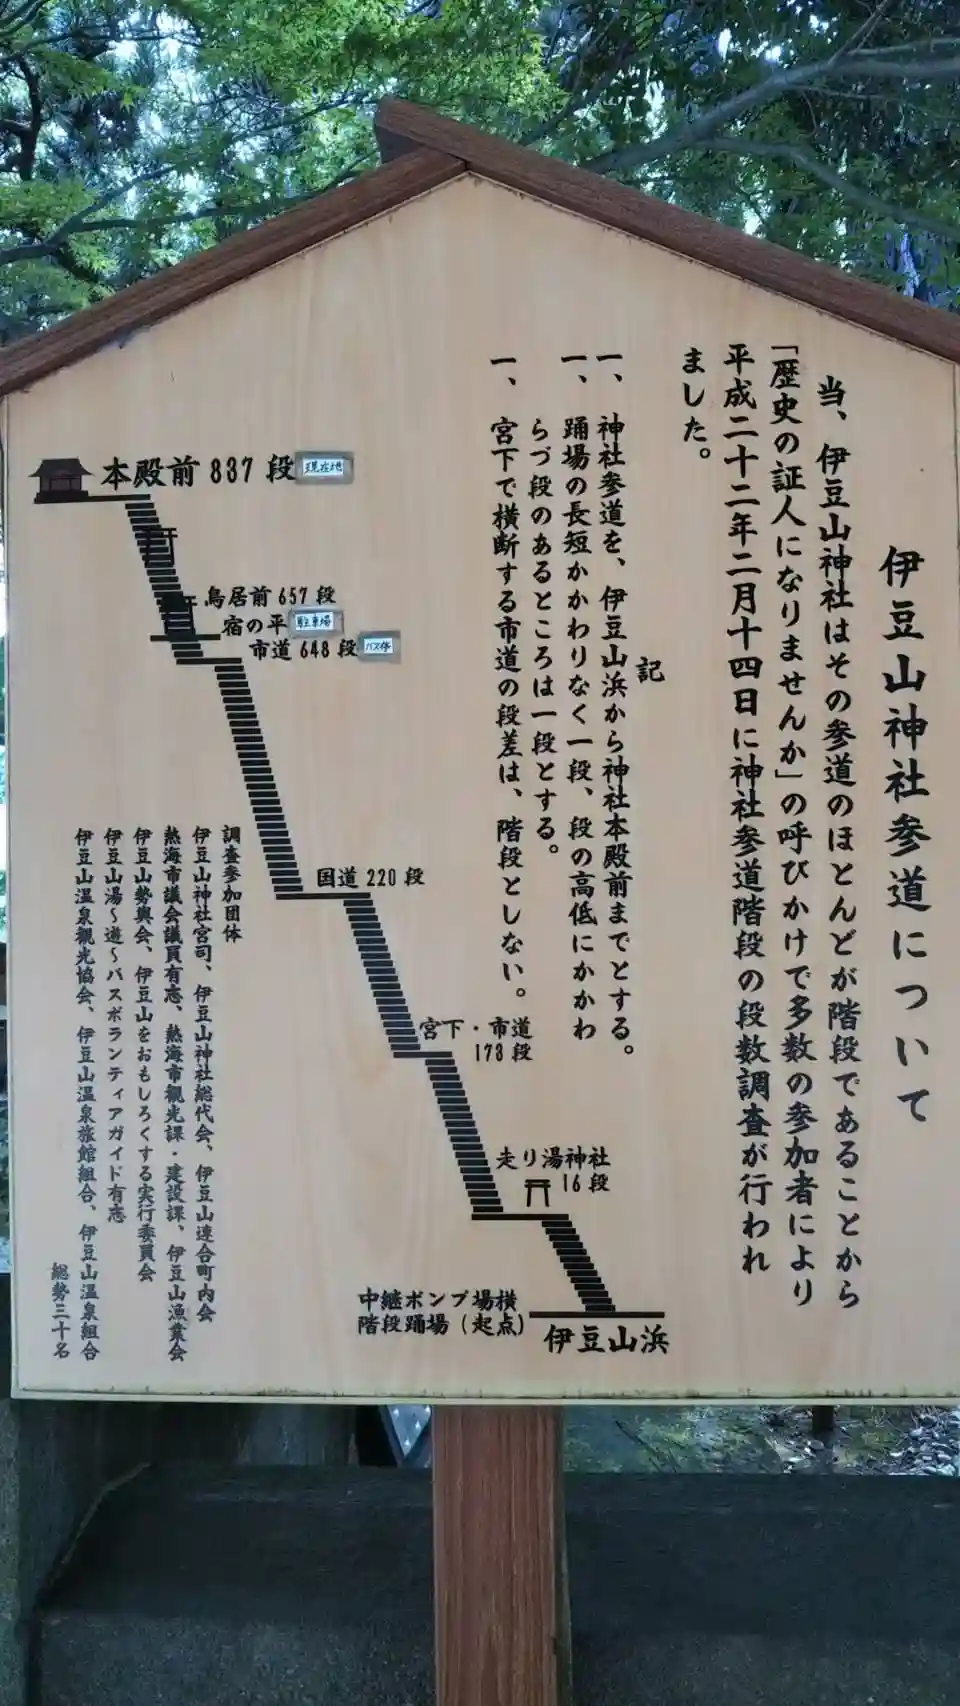 伊豆山神社参道について
当、伊豆山神社はその参道のほとんどが階段であることから
「歴史の証人になりませんか」の呼びかけで多数の参加者により
平成二十二年二月十四日に神社参道階段の段数調査が行われ
ました。
記
一、神社参道を、伊豆山浜から神社本殿前までとする。
一、踊場の長短かかわりなく一段、段の高低にかかわ
らづ段のあるところは一段とする。
一、宮下で横断する市道の段差は、階段としない。
本殿前837段 現在地
鳥居前657段
宿の平 駐車場
市道648段 バス停
国道220段
宮下・市道
173段
走り湯神社
16段
中継ポンプ場横
階段踊場(起点)
伊豆山浜
調査参加団体
伊豆山神社宮司、伊豆山神社総代会、伊豆山連合町内会
熱海市議会議員有志、熱海市観光課・建設課、伊豆山漁業会
伊豆山勢輿会、伊豆山をおもしろくする実行委員会
伊豆山湯～遊～バスボランティアガイド有志
伊豆山温泉観光協会、伊豆山温泉旅館組合、伊豆山温泉組合
総勢三十名